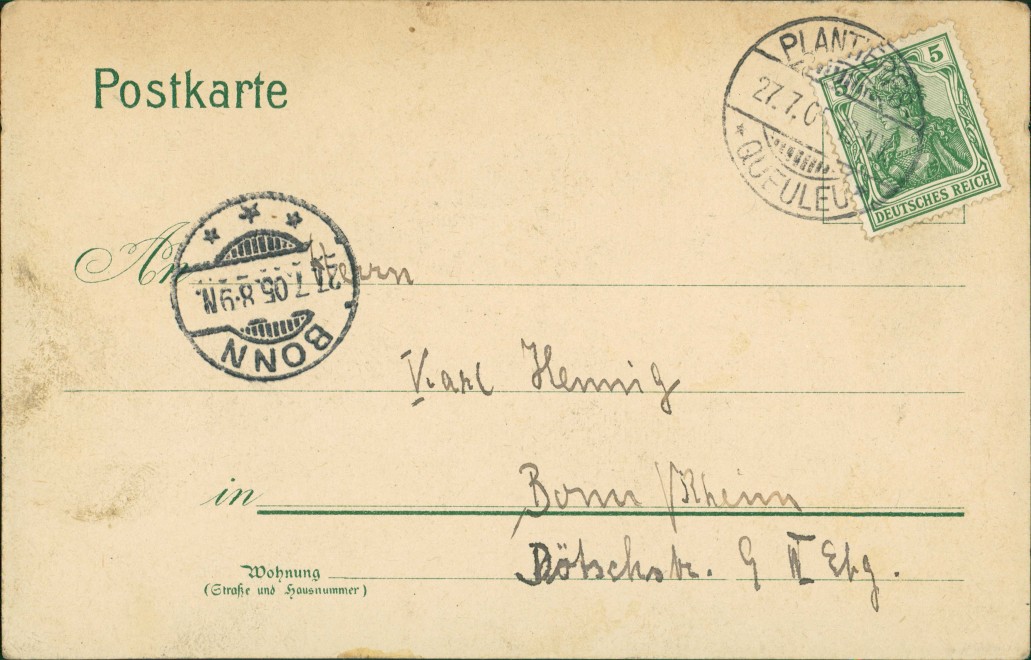 Postkarte
PLANTIERES
27.7.0
QUEULEU
5
5
DEUTSCHES REICH
An Herrn
27.7.05.8-9N.
BONN
Karl Hennig
in Bonn /Rhein
Wohnung Dötschstr. 9 II Etg.
(Straße und Hausnummer)